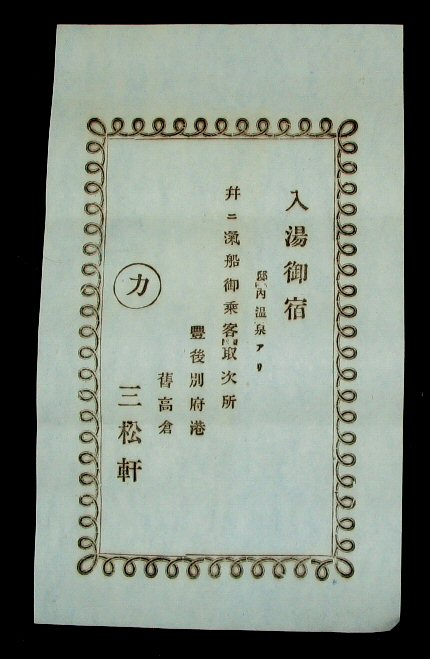 入湯御宿
邸内温泉アリ
幷ニ滊船御乗客取次所
豐後別府港
舊高倉
三松軒
力